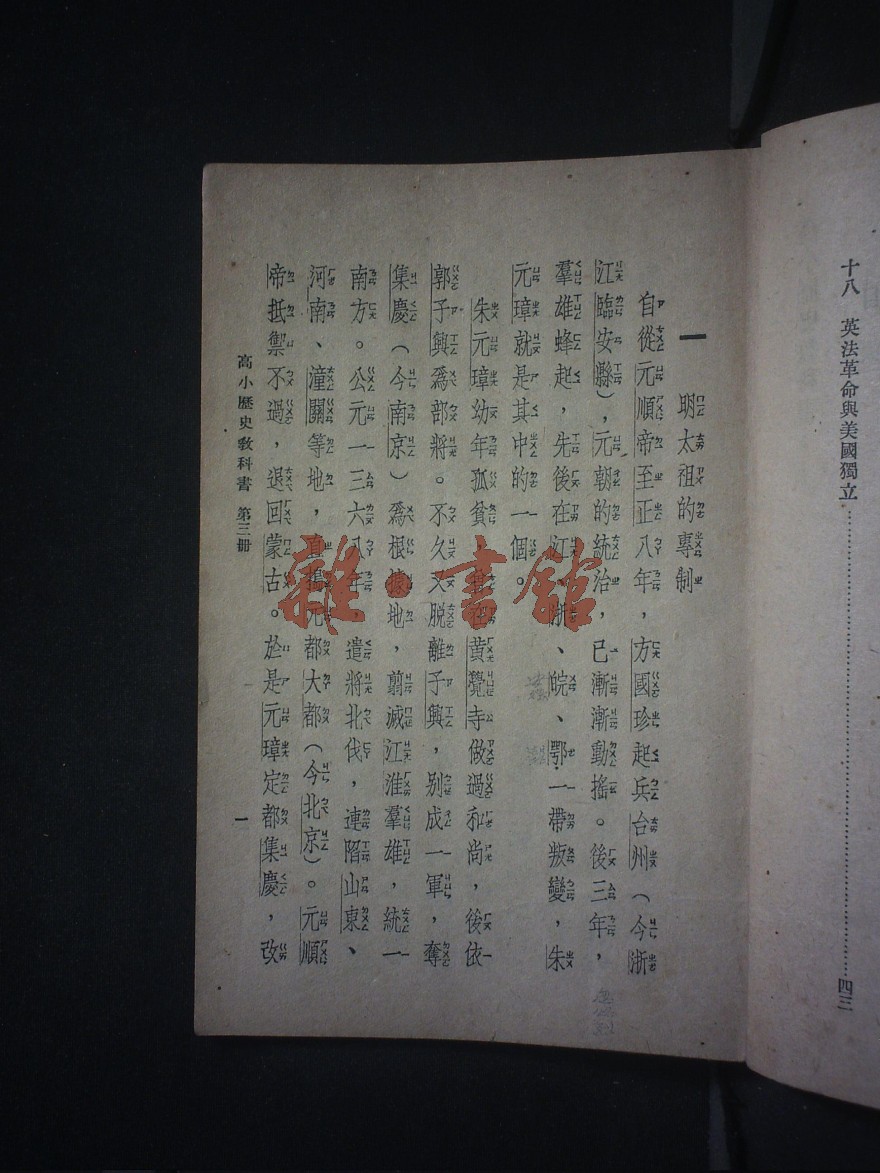 十八　英法革命與美國獨立……………………四三
一　明太祖的專制
自從元順帝至正八年，方國珍起兵台州（今浙
江臨安縣），元朝的統治，已漸漸動搖。後三年，
羣雄蜂起，先後在江、浙、皖、鄂一帶叛變，朱
元璋就是其中的一個。
朱元璋幼年孤貧，在黃覺寺做過和尚，後依
郭子興爲部將。不久又脱離子興，别成一軍，奪
集慶（今南京）爲根據地，翦滅江淮羣雄，統一
南方。公元一三六八年，遣將北伐，連陷山東、
河南、潼關等地，直搗元都大都（今北京）。元順
帝抵禦不過，退回蒙古。於是元璋定都集慶，改
高小歷史教科書　第三册
一
雜·書館